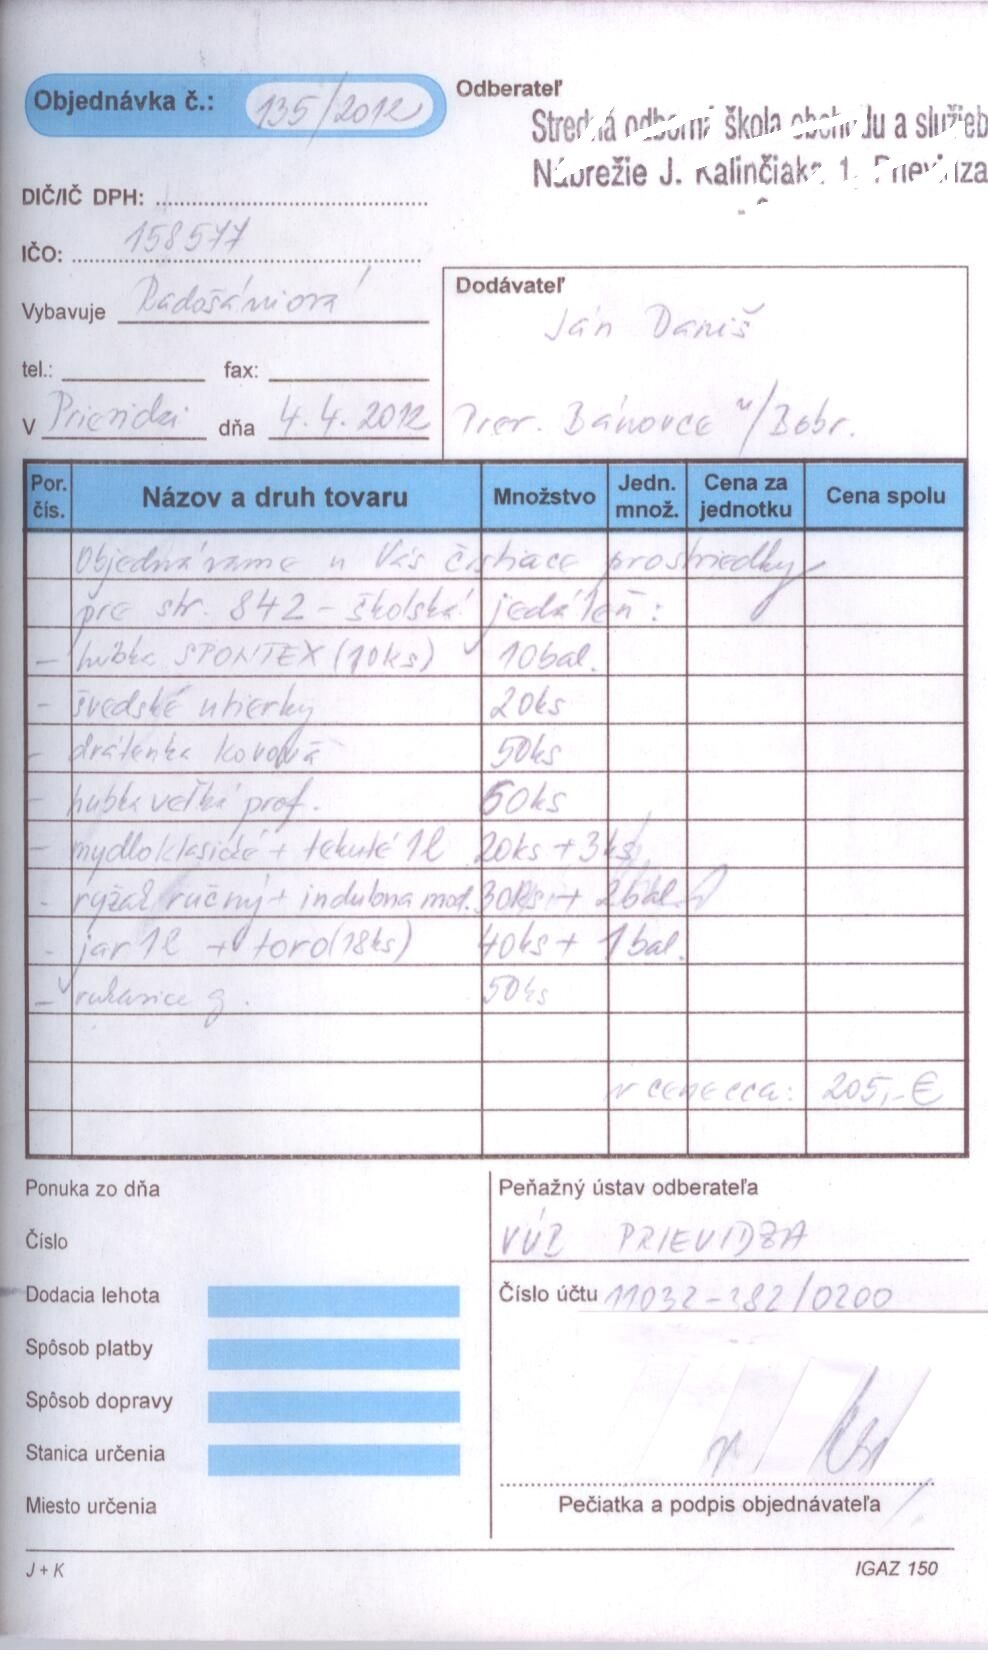 Objednávka č.: 135/2012
Odberateľ
Stredná odborná škola obchodu a služieb
Nábrežie J. Kalinčiaka 1, Prievidza
DIČ/IČ DPH:
IČO: 158577
Vybavuje
Dodávateľ
Ján Daniš
tel.: fax:
V Prievidzi dňa 4.4.2012
Prev. Bánovce n/Bebr.
Por. čís. Názov a druh tovaru Množstvo Jedn. množ. Cena za jednotku Cena spolu
Objednávame u Vás čistiace prostriedky
pre str. 842 - školská jedáleň:
- hubka SPONTEX (10ks) 10bal.
- švédské utierky 20ks
- drátenka kovová 50ks
- hubka veľká prof. 60ks
- mydlo klasické + tekuté 1l 20ks + 3ks
- ryžák ručný + indulona mod. 30ks + 2bal.
- jar 1l + toro (18ks) 40ks + 1bal.
- rukavice g. 50ks
v cene cca: 205,- €
Ponuka zo dňa
Peňažný ústav odberateľa
VÚB PRIEVIDZA
Číslo
Dodacia lehota
Číslo účtu 11032-382/0200
Spôsob platby
Spôsob dopravy
Stanica určenia
Miesto určenia
Pečiatka a podpis objednávateľa
J + K IGAZ 150